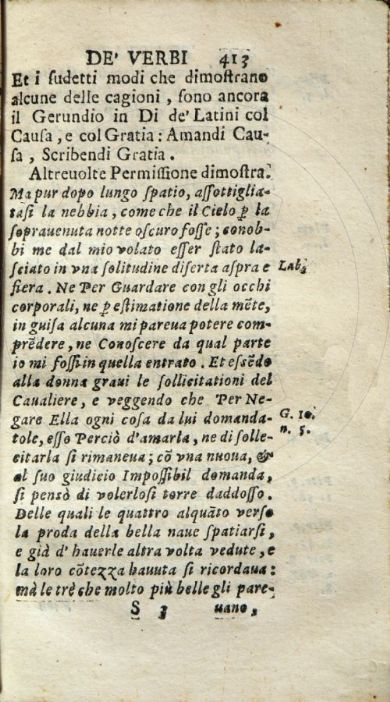 DE' VERBI 413
Et i ſudetti modi che dimoſtrano
alcune delle cagioni, ſono ancora
il Gerundio in Di de' Latini col
Cauſa, e col Gratia: Amandi Cau-
ſa, Scribendi Gratia.
Altreuolte Permiſſione dimoſtra.
Ma pur dopo lungo ſpatio, aſſottiglia-
taſi la nebbia, come che il Cielo ꝑ la
ſoprauenuta notte oſcuro foſſe; conob-
bi me dal mio volato eſſer ſtato la-
ſciato in vna ſolitudine diſerta aſpra e Lab.
fiera. Ne Per Guardare con gli occhi
corporali, ne ꝑ eſtimatione della mẽte,
in guiſa alcuna mi pareua potere com-
prẽdere, ne Conoſcere da qual parte
io mi foſſi in quella entrato. Et eſsẽdo
alla donna graui le ſollicitationi del
Caualiere, e veggendo che Per Ne-
gare Ella ogni coſa da lui domanda- G. 10.
tole, eſſo Perciò d'amarla, ne di ſolle- n. 5.
citarla ſi rimaneua; cõ vna nuoua, &
al ſuo giudicio Impoſſibil domanda,
ſi pensò di volerloſi torre daddoſſo.
Delle quali le quattro alquãto verſo
la proda della bella naue ſpatiarſi,
e già d'hauerle altra volta vedute, e
la loro cõtezza hauuta ſi ricordaua:
mà le trè che molto più belle gli pare-
S 3 uano,